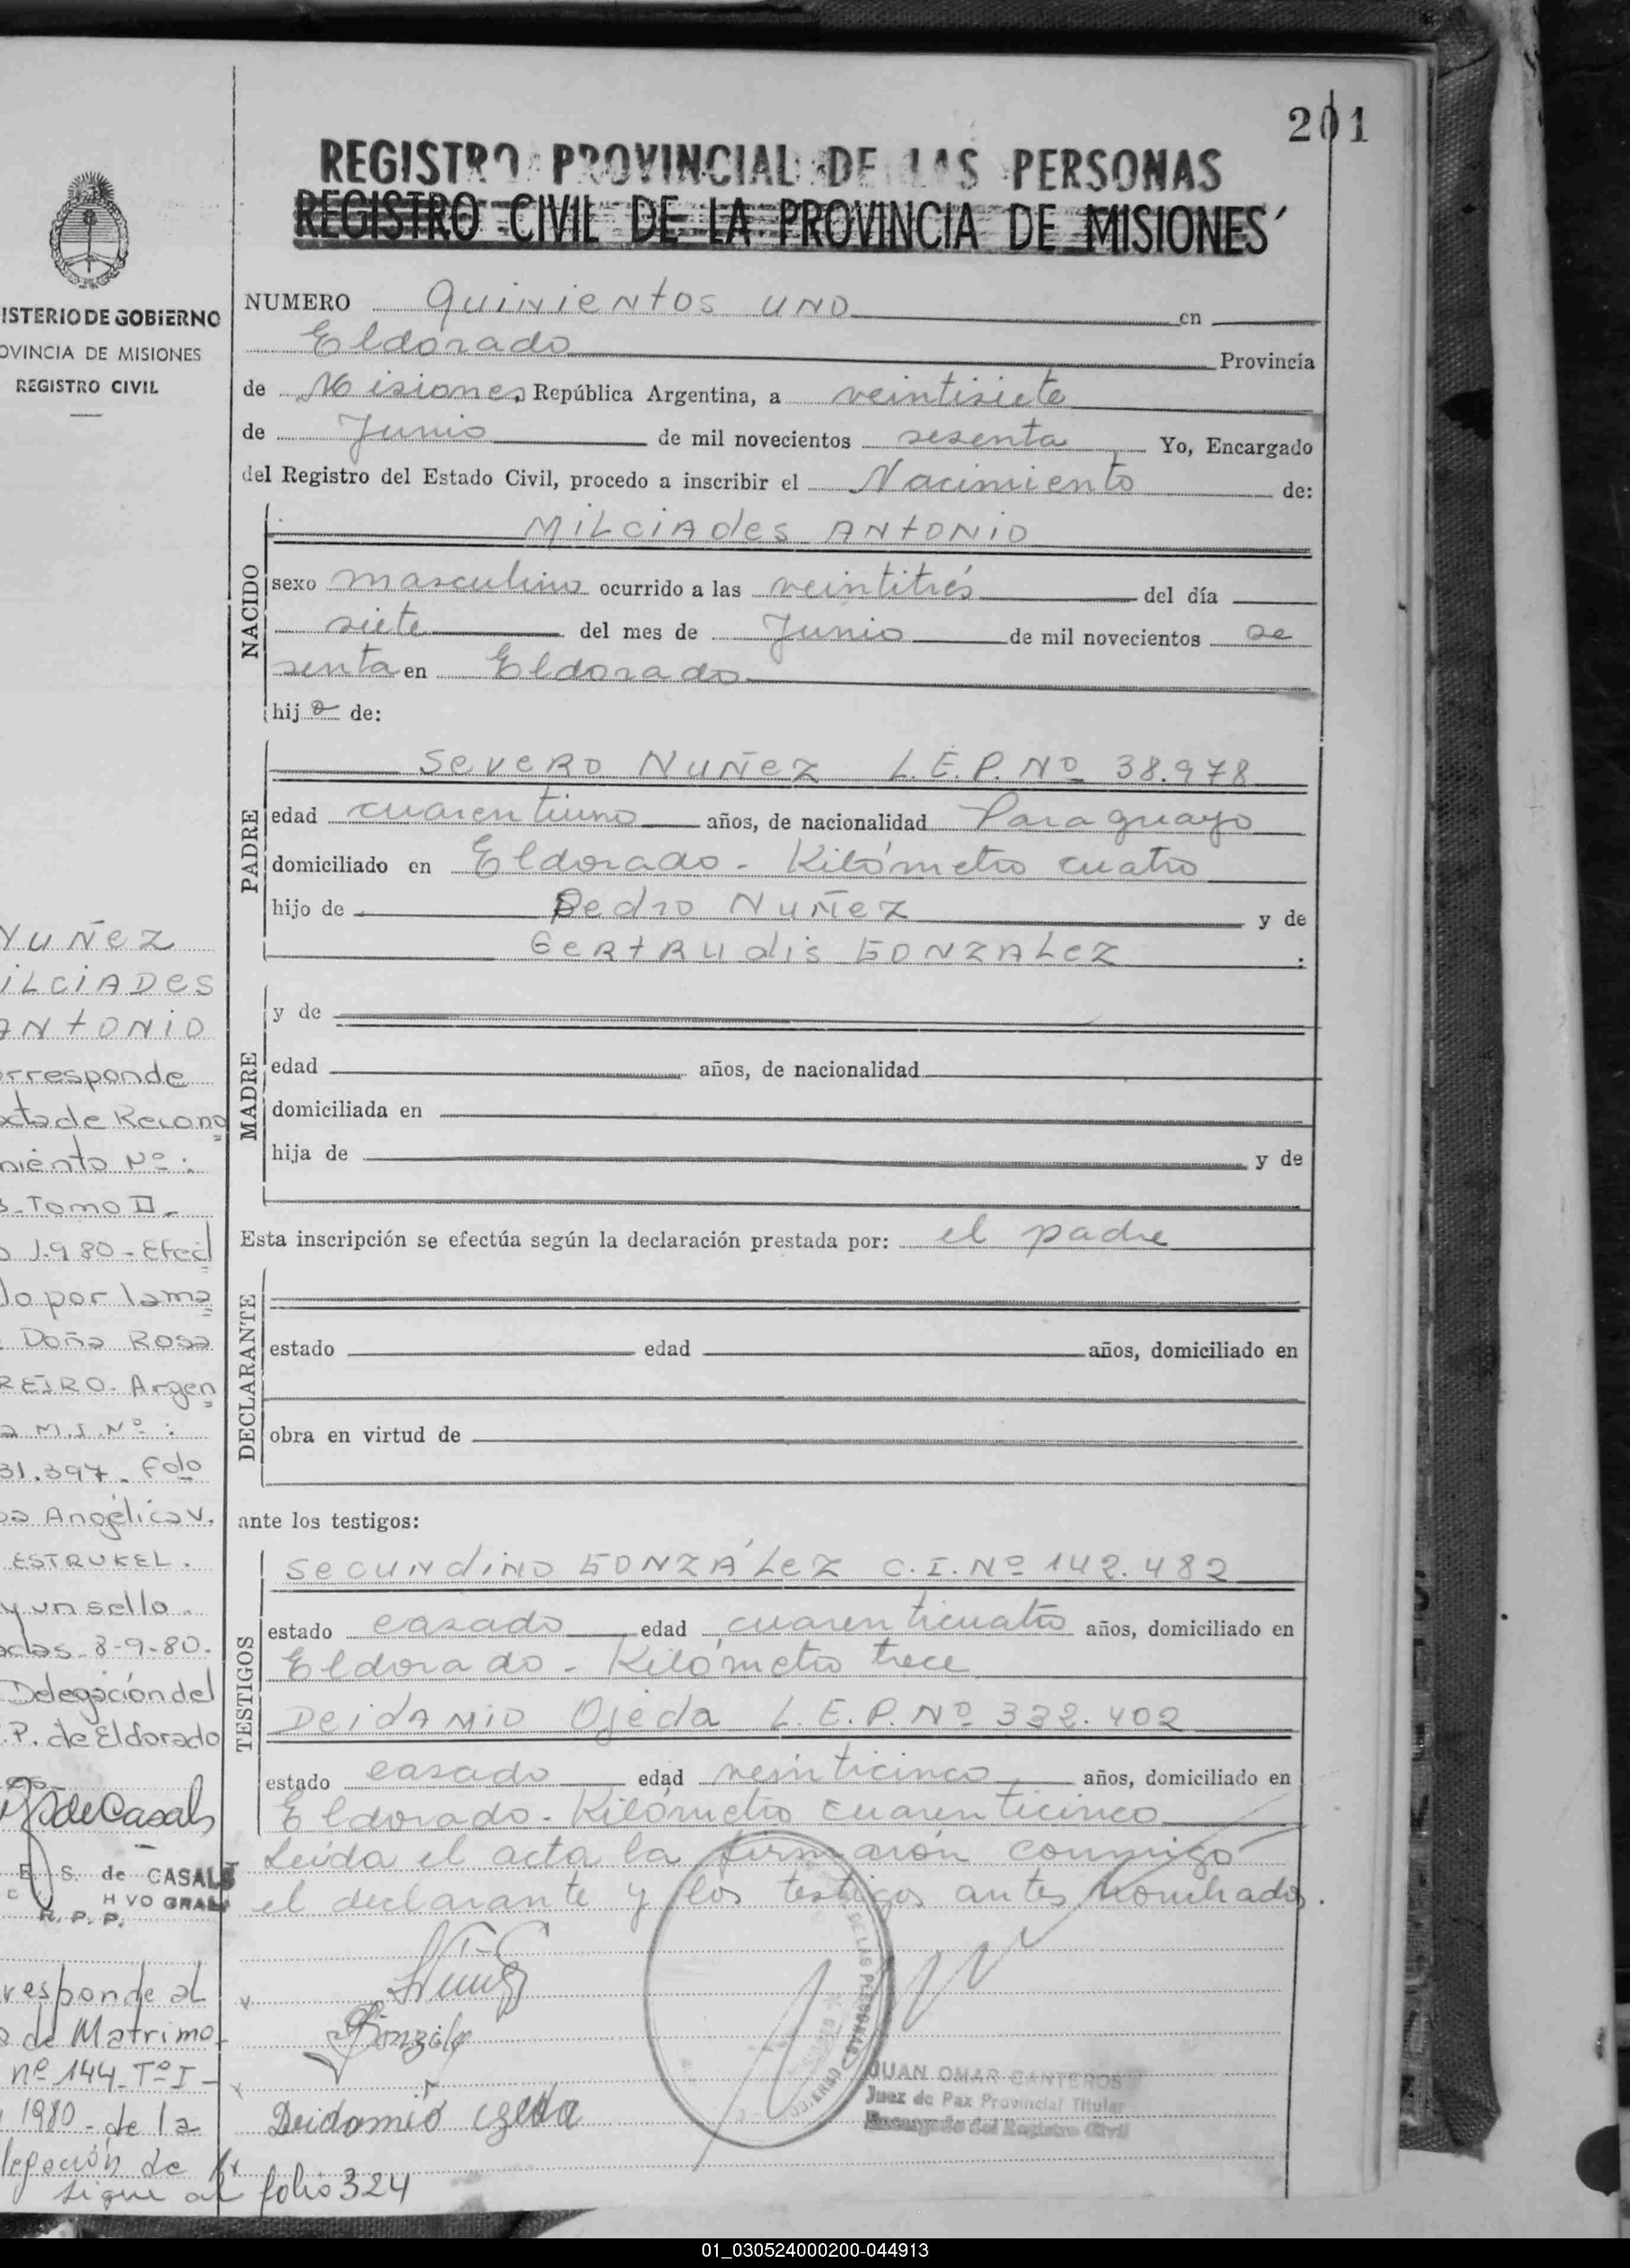 201
REGISTRO PROVINCIAL DE LAS PERSONAS
REGISTRO CIVIL DE LA PROVINCIA DE MISIONES
ISTERIO DE GOBIERNO
OVINCIA DE MISIONES
REGISTRO CIVIL
NUMERO Quinientos uno en
Eldorado Provincia
de Misiones República Argentina, a veintisiete
de Junio de mil novecientos sesenta Yo, Encargado
del Registro del Estado Civil, procedo a inscribir el Nacimiento de:
NACIDO
Milciades Antonio
sexo masculino ocurrido a las veintitrés del día
siete del mes de Junio de mil novecientos se
senta en Eldorado
hijo de:
PADRE
Severo Nuñez L.E.P. Nº 38.978
edad cuarentiuno años, de nacionalidad Paraguayo
domiciliado en Eldorado - Kilómetro cuatro
hijo de Pedro Nuñez y de
Gertrudis Gonzalez :
MADRE
y de
edad años, de nacionalidad
domiciliada en
hija de y de
Esta inscripción se efectúa según la declaración prestada por: el padre
DECLARANTE
estado edad años, domiciliado en
obra en virtud de
ante los testigos:
TESTIGOS
Secundino González C.I. Nº 142.482
estado casado edad cuarenticuatro años, domiciliado en
Eldorado - Kilómetro trece
Deidamio Ojeda L.E.P. Nº 332.402
estado casado edad veinticinco años, domiciliado en
Eldorado - Kilómetro cuarenticinco
Leída el acta la firmarón conmigo
el declarante y los testigos antes nombrados.
JUAN OMAR CANTEROS
Juez de Paz Provincial Titular
Encargado del Registro Civil
NUÑEZ
ILCIADES
ANTONIO
orresponde
acta de Recono
miento Nº:
Tomo II.
1.980 - Efect
do por la ma
Doña Rosa
REIRO. Argen
M.I. Nº:
31.397. Fdo
Angélica V.
ESTRUKEL.
y un sello.
das. 8-9-80.
Delegación del
.P. de Eldorado
de Casals
E. S. de CASALS
R. P. P.
responde al
de Matrimo
nº 144 Tº I -
1980 - de la
legación de
sigue al folio 324
01_030524000200-044913